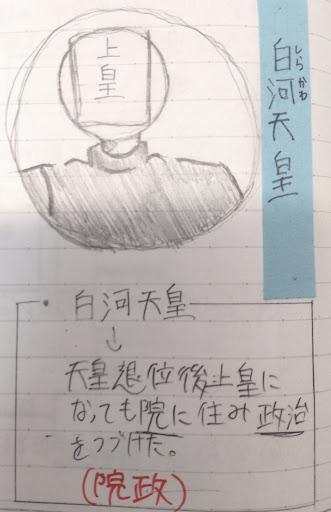 上皇
白河天皇
しらかわ
白河天皇
↓
天皇退位後上皇に
なっても院に住み政治
をつづけた。
(院政)